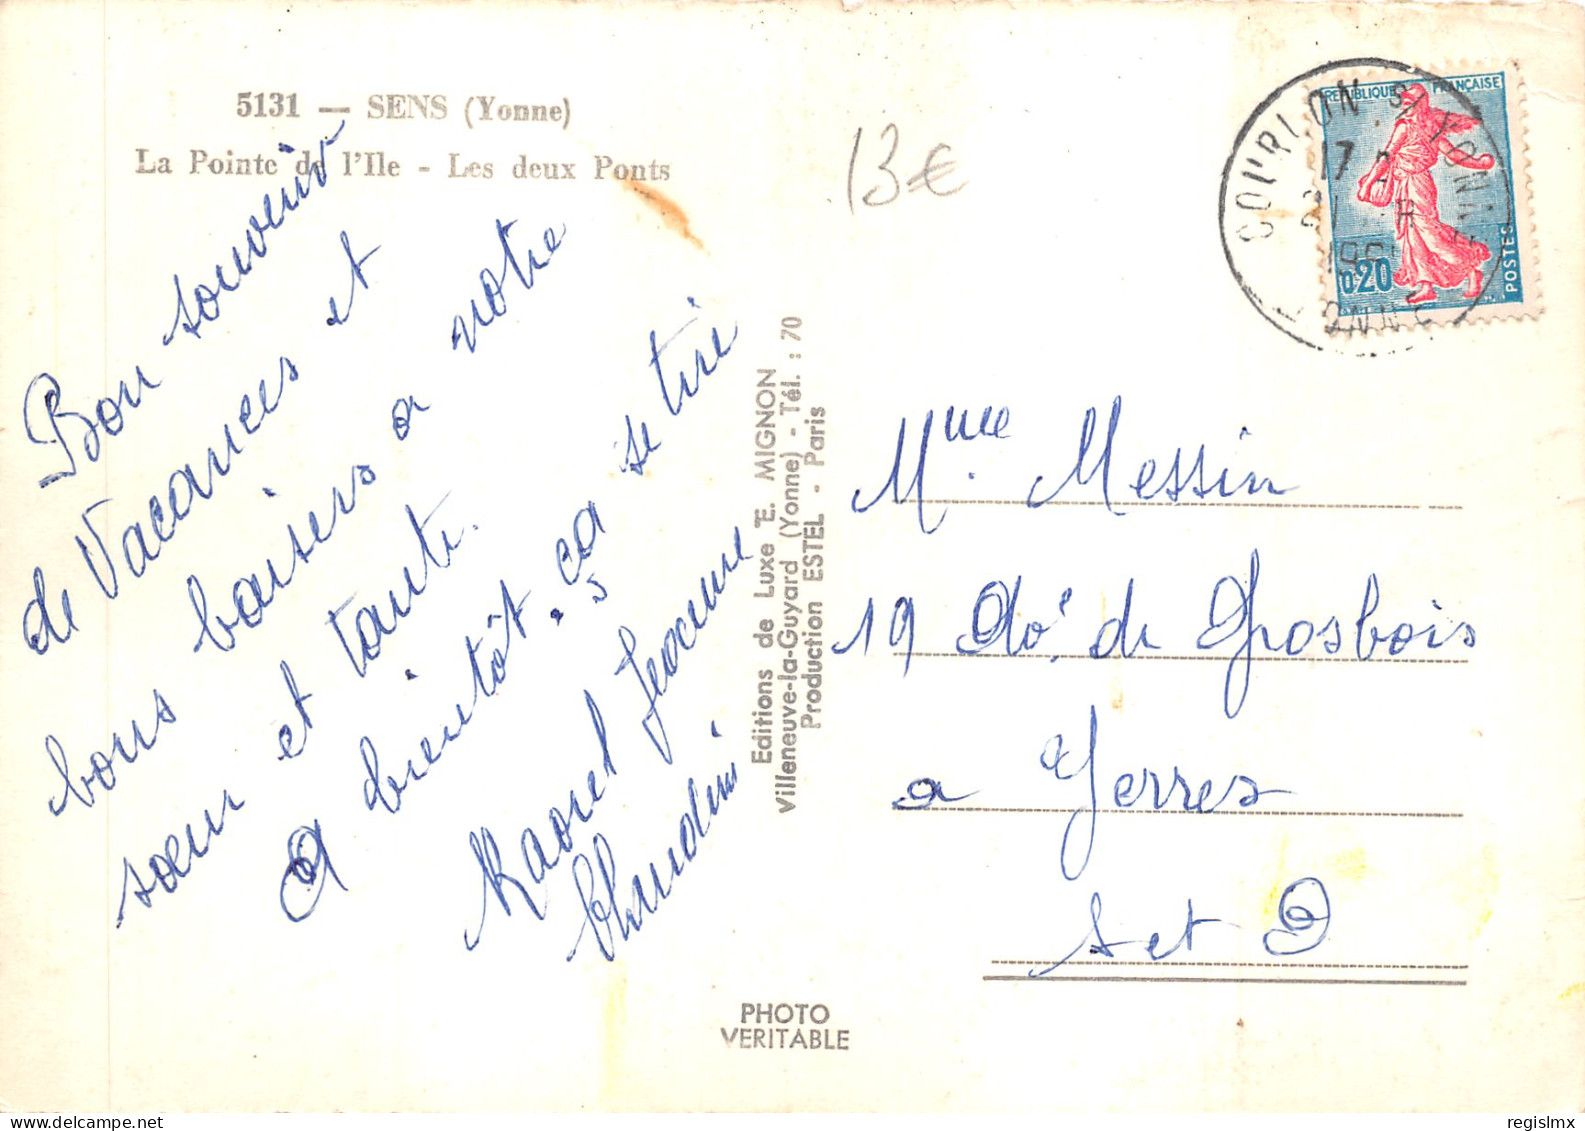 5131 — SENS (Yonne)
La Pointe de l'Ile - Les deux Ponts
13€
Bon souvenir
de Vacances et
bons baisers a notre
sœur et tante.
A bientôt. ça se tire
Raoul Jeanne
Claudine
Editions de Luxe E. MIGNON
Villeneuve-la-Guyard (Yonne) - Tél. : 70
Production ESTEL - Paris
PHOTO
VERITABLE
REPUBLIQUE FRANÇAISE
0,20
POSTES
COURLON S/ YONNE
17
YONNE
Mme Messin
19 de Grosbois
a Yerres
S et O
regislmx